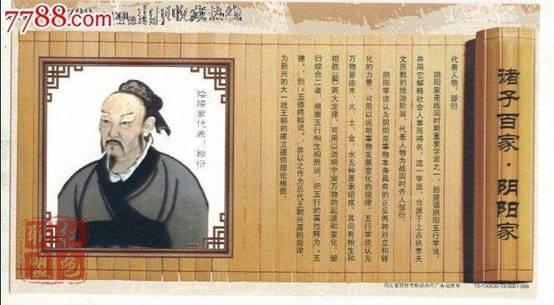 7788.com 中国收藏热线
诸子百家·阴阳家
代表人物，邹衍
阴阳家是战国时期重要学派之一，因提倡阴阳五行学说，
并用它解释社会人事而得名。这一学派，当源于上古执掌天
文历数的统治阶层，代表人物为战国时齐人邹衍。
阴阳学说认为阴阳是事物本身具有的正反两种对立和转
化的力量，可用以说明事物发展变化的规律。五行学说认为
万物皆由木、火、土、金、水五种原素组成，其间有相生和
相胜（克）两大定律，可用以说明宇宙万物的起源和变化。邹
衍综合二者，根据五行相生相胜说，把五行的属性释为“五
德”，创“五德终始说”，并以之作为历代王朝兴废的规律，
为新兴的大一统王朝的建立提供理论根据。
陰陽家代表：鄒衍
13-100530-13-0001-006